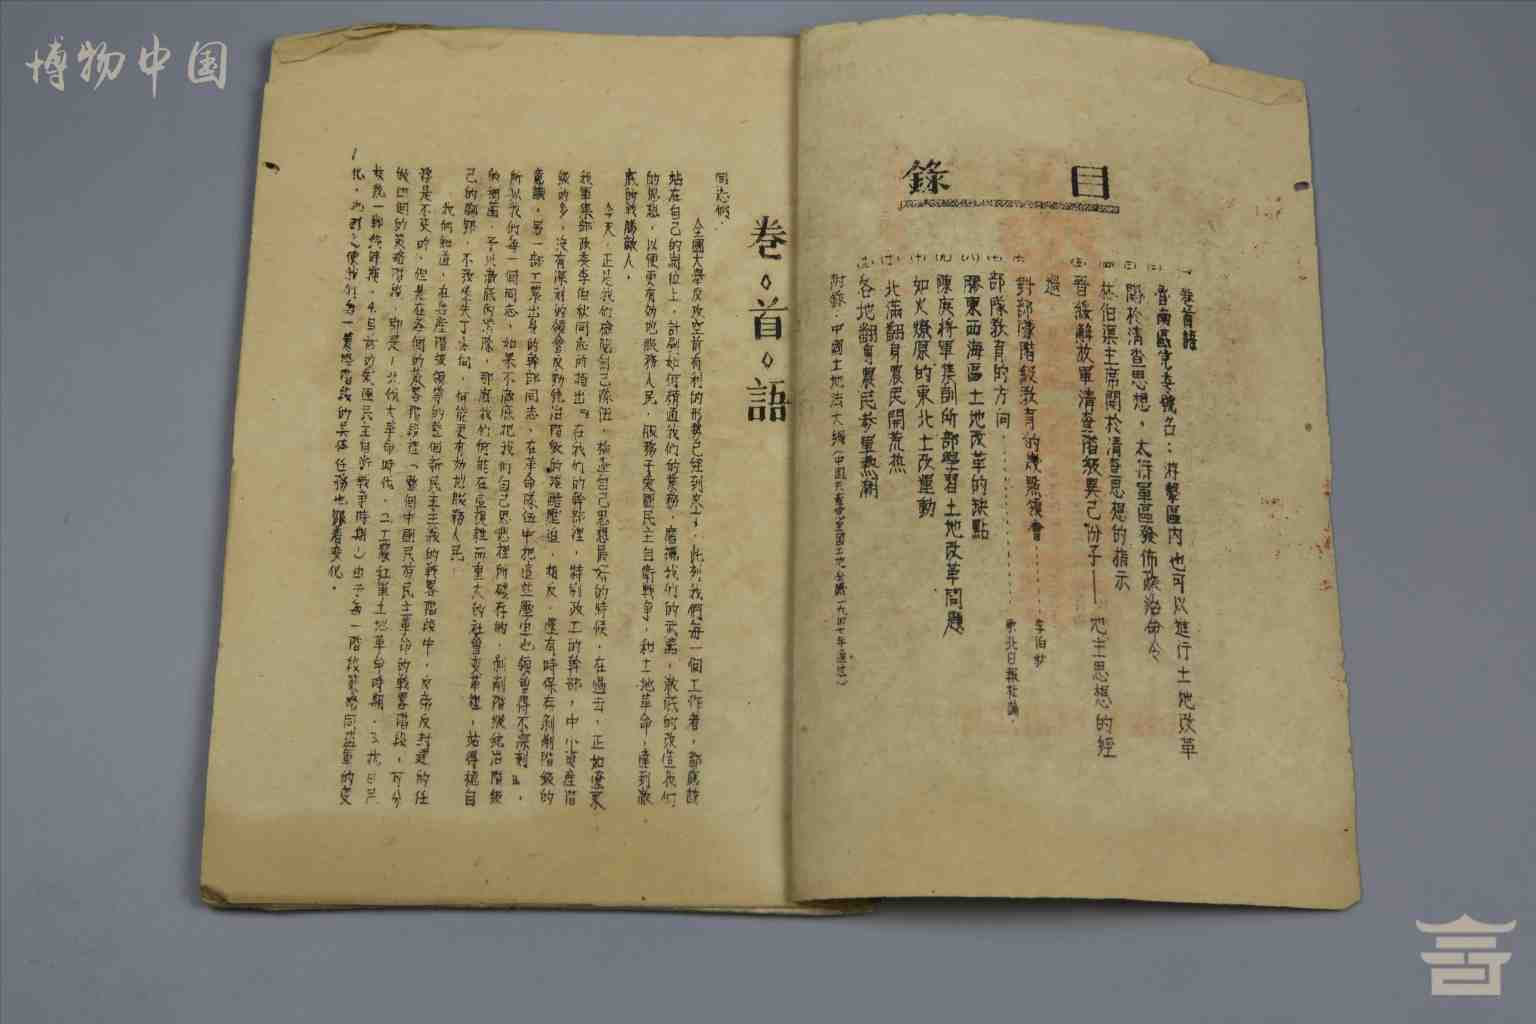 博物中国
目錄
(一) 卷首語
(二) 晋南區党委號召：游擊區內也可以進行土地改革
(三) 関於清查思想，太行軍區發佈政治命令
(四) 林伯渠主席関於清查思想的指示
(五) 晋綏解放軍清查階級異己份子——地主思想的經過
對部隊階級教育的幾點領會…………李伯秋
部隊教育的方向…………東北日報社論．
膠東西海區土地改革的缺點
(九) 陳庚將軍集訓所部學習土地改革問題
(十) 如火燎原的東北土改運動
北滿翻身農民開荒热
各地翻身農民參軍熱潮
附錄．中國土地法大綱
卷◇首◇語
同志們．
全國大舉反攻空前有利的形勢已經到來了，此刻我們每一個工作者，都應該
站在自己的崗位上，計劃如何精通我們的業務，磨擦我們的武器，澈底的改造我們
的思想，以便更有効地服務人民，服務于愛國民主自衛戰爭，和土地革命，達到澈
底的戰勝敵人．
今天，正是我們檢閱自己隊伍，檢查自己思想最好的時候，在過去，正如遼東
我軍集訓政委李伯秋同志所指出『在我們的幹部裡，特别政工的幹部，中小資產階
級的多，沒有深刻的領會反動統治階級的殘酷壓迫．相反，還有時保存剝削階級的
意識，另一部工農出身的幹部同志，在革命隊伍中把這些歷史也領會得不深刻』，
所以我們每一個同志，如果不澈底把我們自己思想裡所殘存的，剝削階級統治階級
的，予以澈底的清除，那麼我們何能在這複雜而重大的社會變革裡，站得穩自
己的腳跟，不致迷失了方向，何能更有効地服務人民．
我們知道，在無產階級領導的整個新民主主義的戰畧階段中，反帝反封建的任
務是不变的，但是在各個的策畧階段裡（整個中國民族民主革命的戰畧階段，可分
做四個的策略階段，那是1.北伐大革命時代．2.工農紅軍土地革命時期．3.抗日民
族統一戰線時期．4.目前的愛國民主自衛戰爭時期）由于每一階段策畧同盟軍的变
化，也就使我們每一策略階段的具体任務也跟着变化．